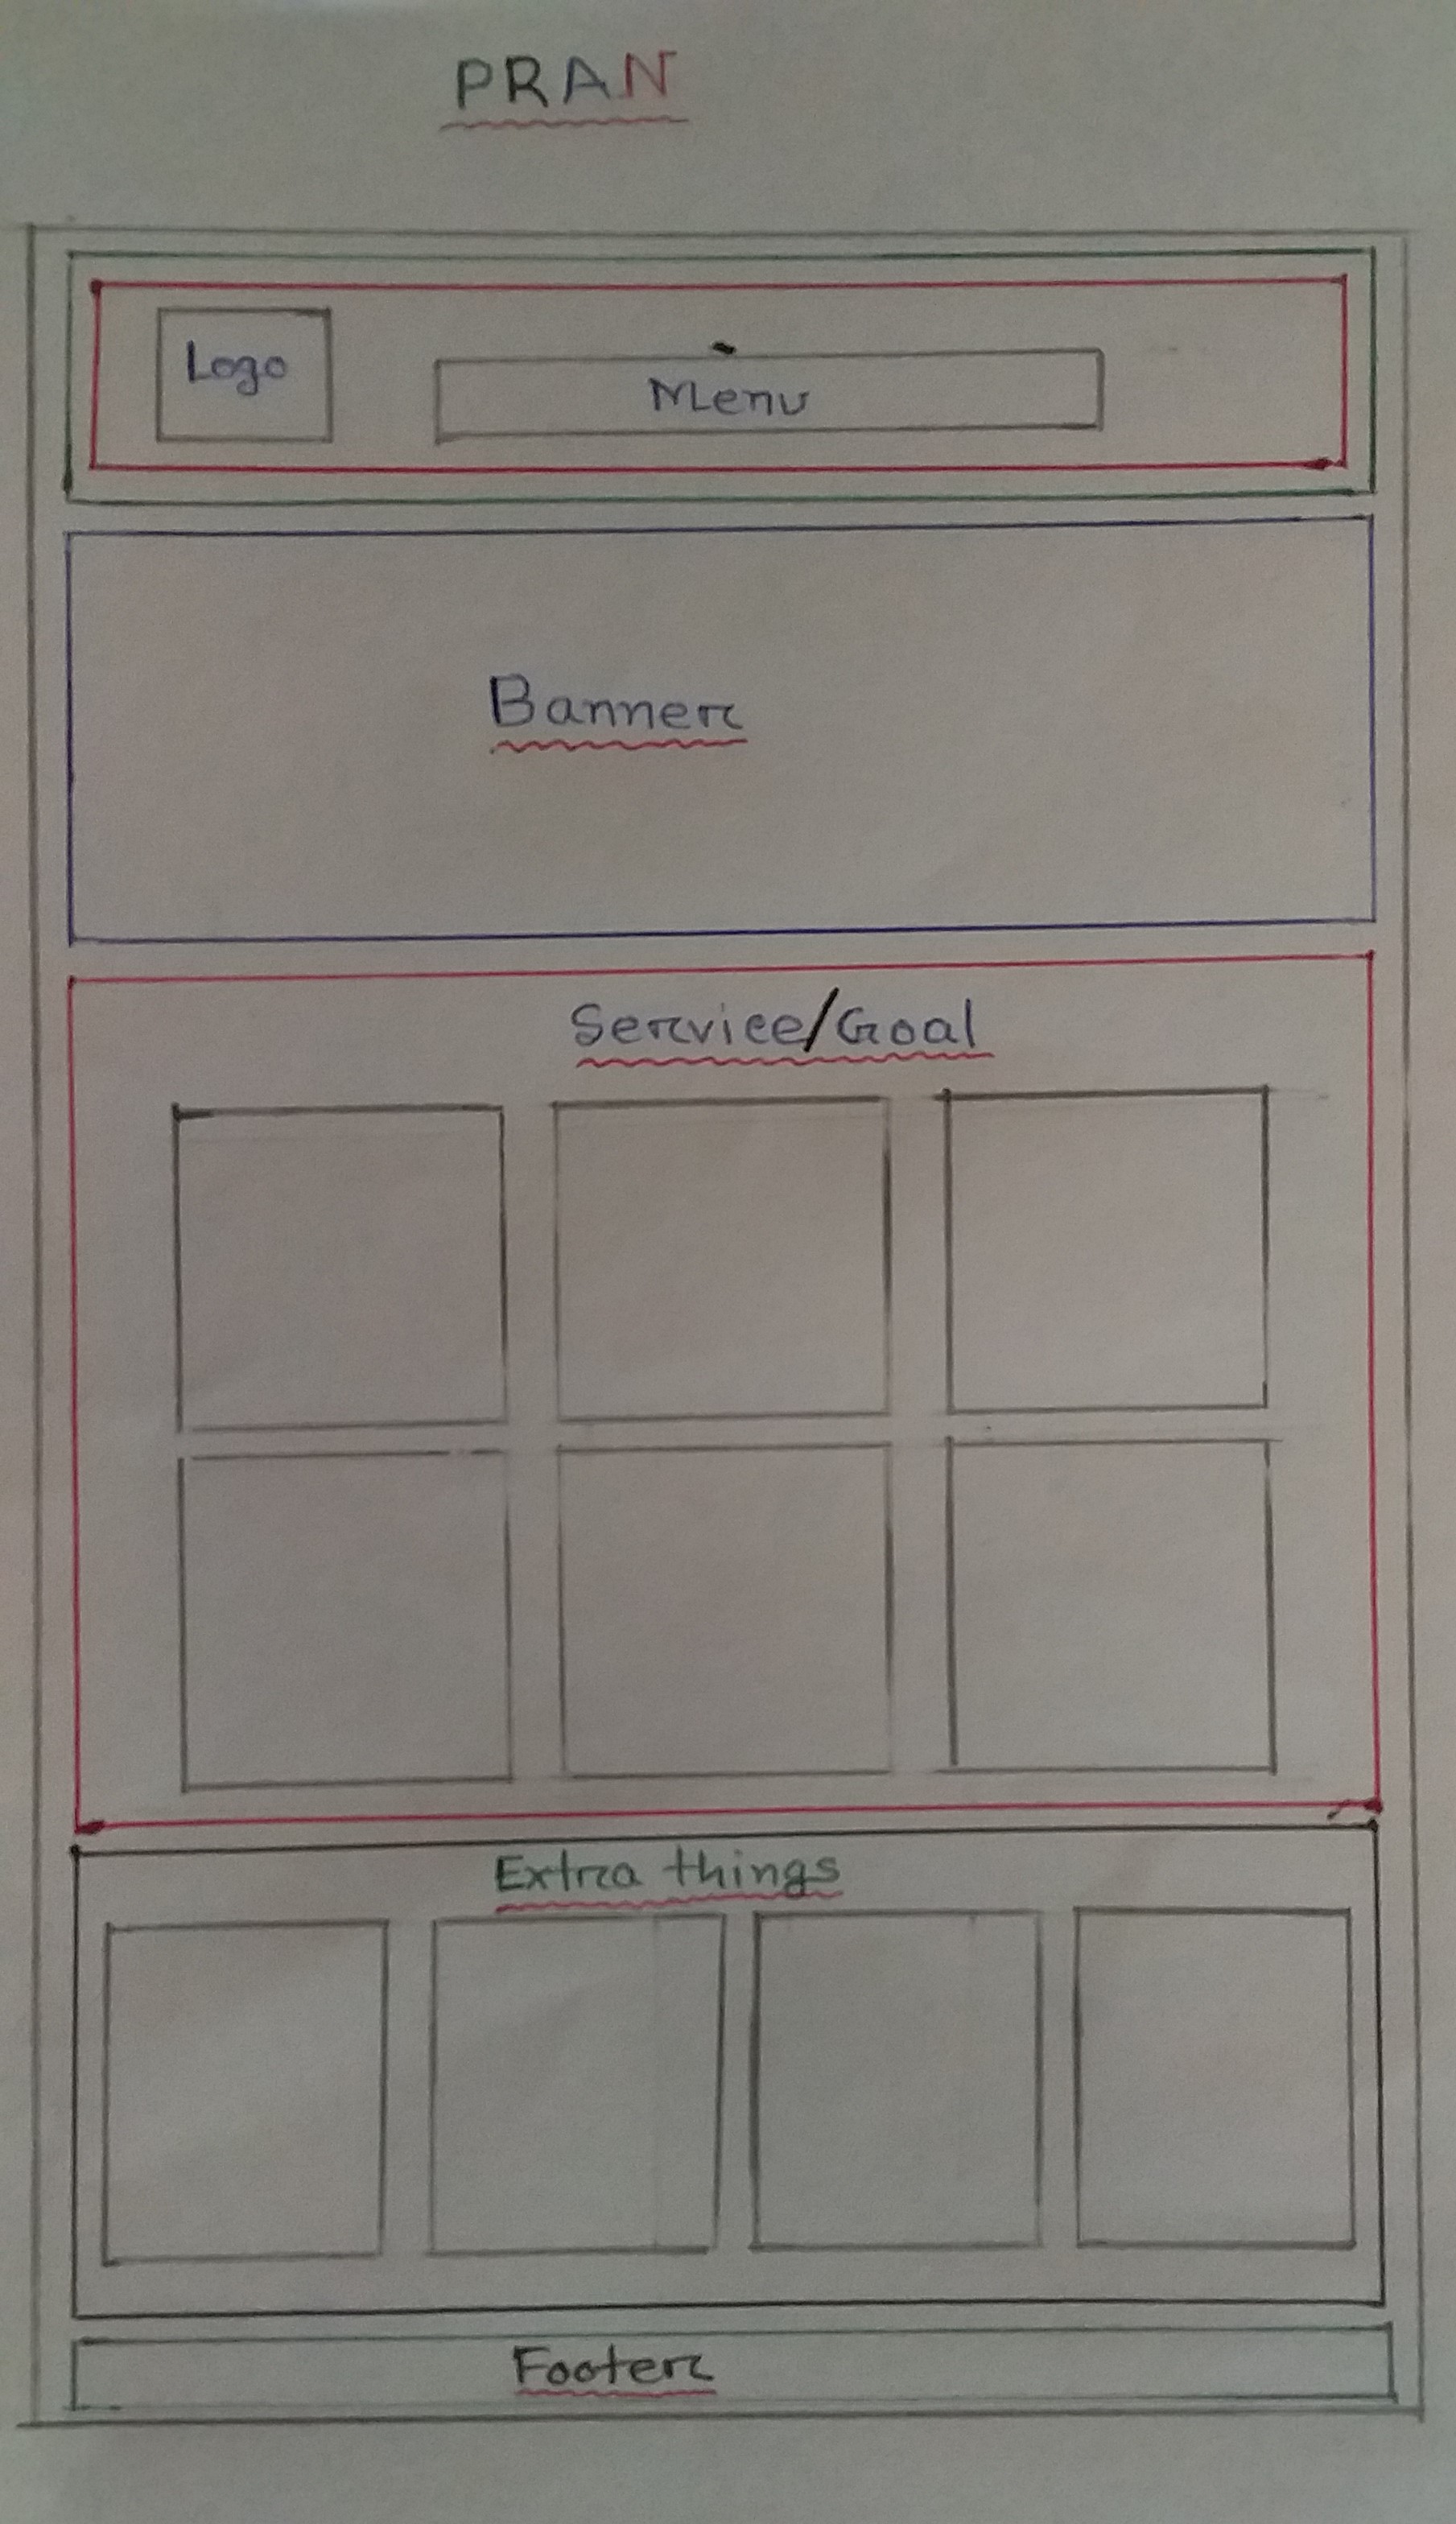 PRAN
Logo
Menu
Banner
Service/Goal
Extra things
Footer